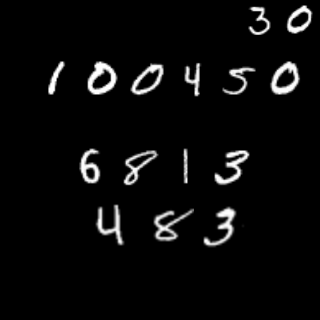 30
100450
6813
483